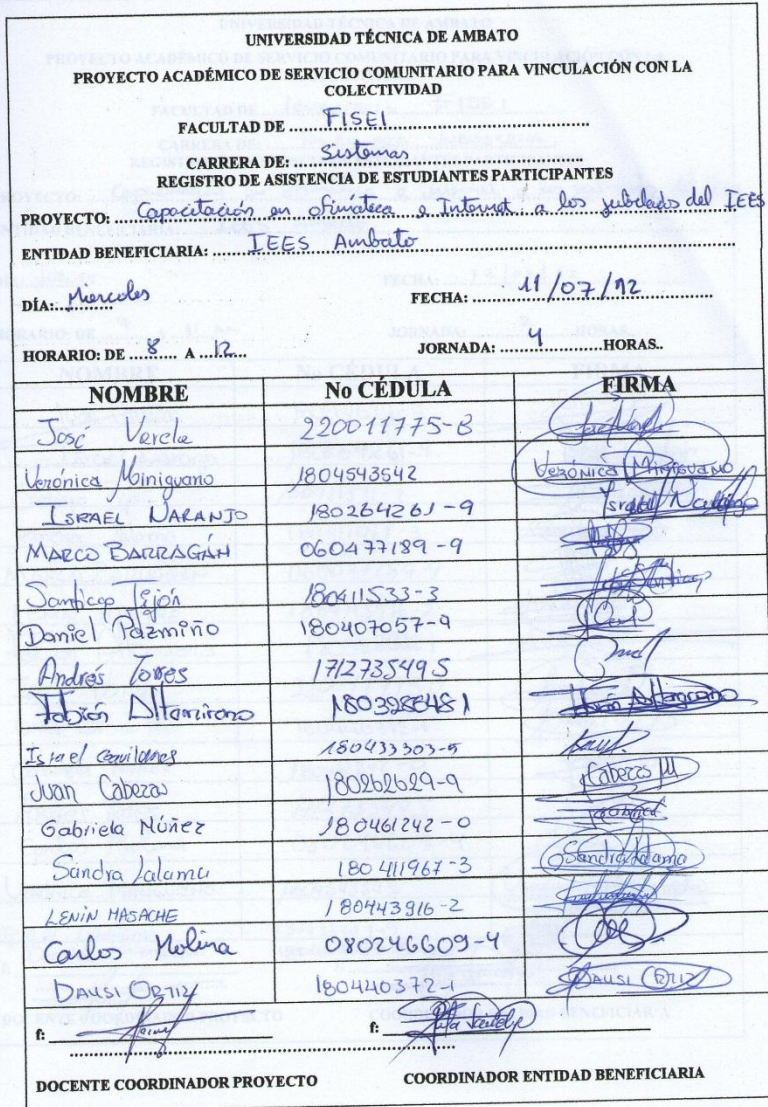 UNIVERSIDAD TÉCNICA DE AMBATO
PROYECTO ACADÉMICO DE SERVICIO COMUNITARIO PARA VINCULACIÓN CON LA
COLECTIVIDAD
FACULTAD DE ...... FISEI
CARRERA DE: ...... Sistemas
REGISTRO DE ASISTENCIA DE ESTUDIANTES PARTICIPANTES
PROYECTO: Capacitación en ofimática e Internet a los jubilados del IEES
ENTIDAD BENEFICIARIA: IEES Ambato
DÍA: Miercoles FECHA: 11/07/12
HORARIO: DE 8 A 12 JORNADA: 4 HORAS..
NOMBRE No CÉDULA FIRMA
José Varela 220011775-8
Verónica Miniguano 1804543542 Verónica Miniguano
ISRAEL NARANJO 180264261-9 Israel Naranjo
MARCO BARRAGÁN 060477189-9
Santiago Tejón 180411533-3
Daniel Pazmiño 180407057-9
Andrés Torres 1712735495
Fabián Altamirano 1803928481 Fabián Altamirano
Israel 180433303-5
Juan Cabezas 180262629-9 Cabezas
Gabriela Núñez 180461242-0 Gabriela
Sandra Lalama 180411967-3 Sandra Lalama
LENIN MASACHE 180443916-2
Carlos Molina 080246609-4
DAUSI ORTIZ 180440372-1 DAUSI ORTIZ
f: f:
DOCENTE COORDINADOR PROYECTO COORDINADOR ENTIDAD BENEFICIARIA